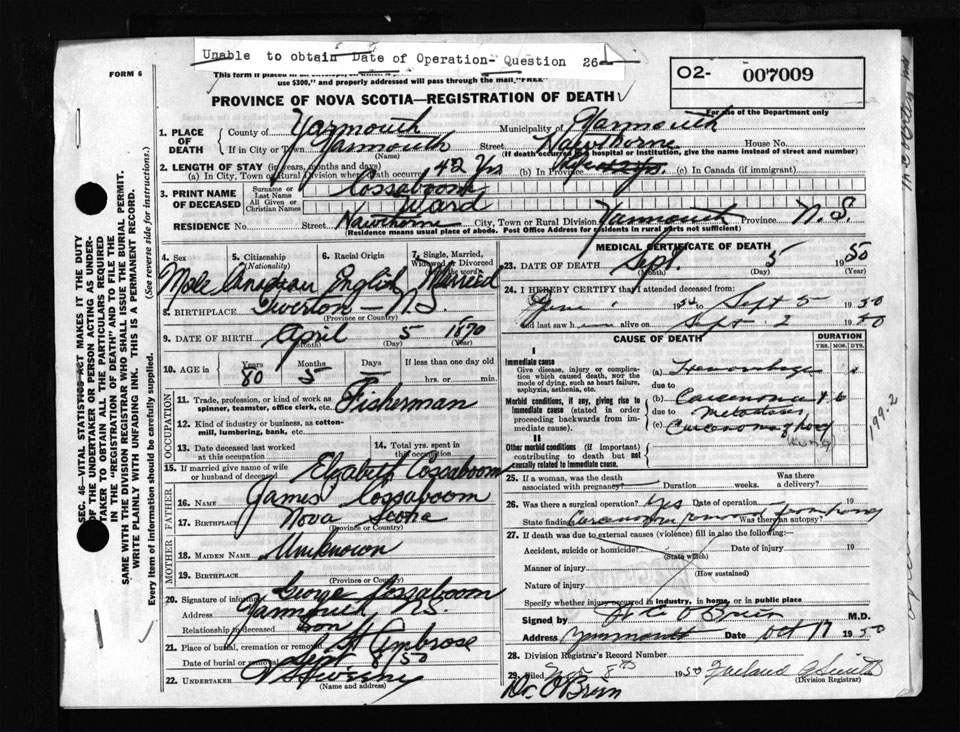 Unable to obtain Date of Operation- Question 26
FORM 6
use $300," and properly addressed will pass through the mail, "FREE"
O2- 007009
For use of the Department only
PROVINCE OF NOVA SCOTIA—REGISTRATION OF DEATH
1. PLACE OF DEATH
County of Yarmouth Municipality of Yarmouth
If in City or Town Yarmouth Street Hawthorne House No.
(Name) (If death occurred in a hospital or institution, give the name instead of street and number)
2. LENGTH OF STAY (in years, months and days)
(a) In City, Town or Rural Division where death occurred 42 Yrs (b) In Province (c) In Canada (if immigrant)
3. PRINT NAME OF DECEASED
Surname or Last Name Cossaboom
All Given or Christian Names Ward
RESIDENCE No. Street Hawthorne City, Town or Rural Division Yarmouth Province N.S.
(Residence means usual place of abode. Post Office Address for residents in rural parts not sufficient)
4. Sex 5. Citizenship (Nationality) 6. Racial Origin 7. Single, Married, Widowed or Divorced (write the word)
Male Canadian English Married
8. BIRTHPLACE Tiverton N.S.
(Province or Country)
9. DATE OF BIRTH April 5 1870
(Month) (Day) (Year)
10. AGE in Years Months Days If less than one day old
80 5 — hrs. or min.
OCCUPATION
11. Trade, profession, or kind of work as spinner, teamster, office clerk, etc. Fisherman
12. Kind of industry or business, as cotton-mill, lumbering, bank, etc.
13. Date deceased last worked at this occupation
14. Total yrs. spent in this occupation
15. If married give name of wife or husband of deceased Elizabeth Cossaboom
FATHER
16. Name James Cossaboom
17. Birthplace Nova Scotia
(Province or Country)
MOTHER
18. MAIDEN NAME Unknown
19. BIRTHPLACE
(Province or Country)
20. Signature of informant George Cossaboom
Address Yarmouth N.S.
Relationship to deceased Son
21. Place of burial, cremation or removal St Ambrose
Date of burial or removal Sept 8/50
22. UNDERTAKER V S Sweeny
(Name and address)
MEDICAL CERTIFICATE OF DEATH
23. DATE OF DEATH Sept. 5 1950
(Month) (Day) (Year)
24. I HEREBY CERTIFY that I attended deceased from:
June 1 1950 to Sept 5 1950
and last saw him alive on Sept. 2 1950
CAUSE OF DEATH
DURATION
YRS. MOS. DYS.
I
Immediate cause
Give disease, injury or complication which caused death, NOT the mode of dying, such as heart failure, asphyxia, asthenia, etc.
(a) Hemorrhage
due to
Morbid conditions, if any, giving rise to immediate cause (stated in order proceeding backwards from immediate cause)
(b) Carcinoma
due to Metastases
(c) Carcinoma
II
Other morbid conditions (if important) contributing to death but not causally related to immediate cause.
199.2
25. If a woman, was the death associated with pregnancy? Duration weeks. Was there a delivery?
26. Was there a surgical operation? Yes Date of operation 19
State findings Carcinoma Was there an autopsy?
27. If death was due to external causes (violence) fill in also the following:—
Accident, suicide or homicide? Date of injury 19
(State which)
Manner of injury
(How sustained)
Nature of injury
Specify whether injury occurred in industry, in home, or in public place
Signed by O'Brien M.D.
Address Yarmouth Date Oct 17 1950
28. Division Registrar's Record Number
29. Filed Nov 8th 1950
(Division Registrar)
Dr. O'Brien
SEC. 46—VITAL STATISTICS ACT MAKES IT THE DUTY
OF THE UNDERTAKER OR PERSON ACTING AS UNDER-
TAKER TO OBTAIN ALL THE PARTICULARS REQUIRED
IN THE "REGISTRATION OF DEATH" AND TO FILE THE
SAME WITH THE DIVISION REGISTRAR WHO SHALL ISSUE THE BURIAL PERMIT.
WRITE PLAINLY WITH UNFADING INK. THIS IS A PERMANENT RECORD.
Every item of information should be carefully supplied. (See reverse side for instructions.)